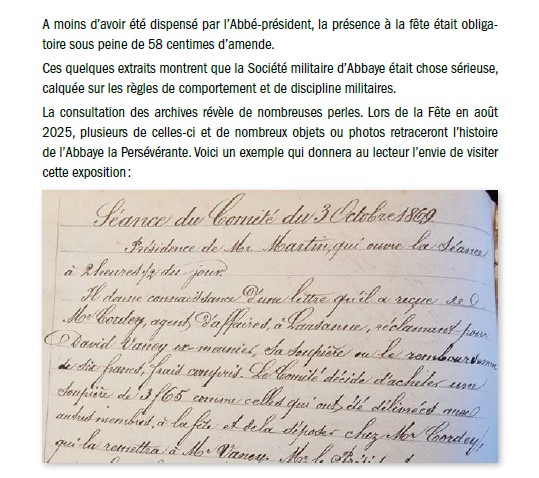 A moins d’avoir été dispensé par l’Abbé-président, la présence à la fête était obliga-
toire sous peine de 58 centimes d’amende.
Ces quelques extraits montrent que la Société militaire d’Abbaye était chose sérieuse,
calquée sur les règles de comportement et de discipline militaires.
La consultation des archives révèle de nombreuses perles. Lors de la Fête en août
2025, plusieurs de celles-ci et de nombreux objets ou photos retraceront l’histoire
de l’Abbaye la Persévérante. Voici un exemple qui donnera au lecteur l’envie de visiter
cette exposition :
Séance du Comité du 3 Octobre 1869
Présidence de Mr Martin, qui ouvre la Séance
à 2 heures 1/2 du jour.
Il donne connaissance d'une lettre qu'il a reçue de
Mr Cordey, agent d'affaires, à Lausanne, réclamant pour
David Vaney ex-meunier, sa soupière ou le
de six francs, frais compris. Le Comité décide d'acheter une
soupière de 3f65 comme celles qui ont été délivrées aux
autres membres, à la fête et de la déposer chez Mr Cordey,
qui la remettra à Mr Vaney. Mr le